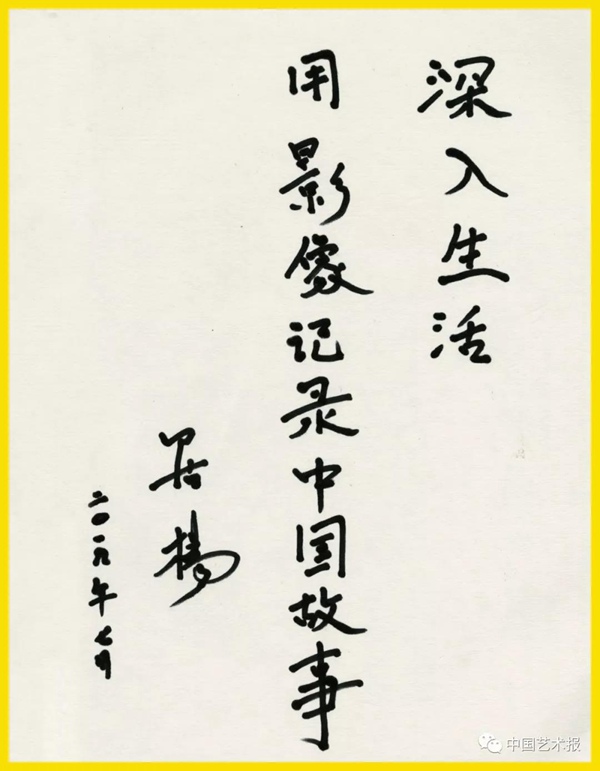 深入生活
用影像记录中国故事
居杨
二〇一九年七月
中国艺术报